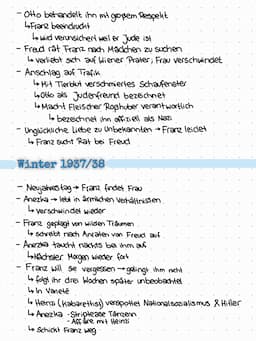 - Otto behandelt ihn mit großem Respekt
↳ Franz beeindruckt
↳ wird verunsichert weil er Jude ist
- Freud rät Franz nach Mädchen zu suchen
↳ verliebt sich auf Wiener Prater, Frau verschwindet
- Anschlag auf Trafik
↳ Mit Tierblut verschmiertes Schaufenster
↳ Otto als Judenfreund bezeichnet
↳ Macht Fleischer Roßhuber verantwortlich
↳ bezeichnet ihn offiziell als Nazi
- Unglückliche Liebe zu Unbekannten → Franz leidet
↳ Franz sucht Rat bei Freud
Winter 1937/38
- Neujahrestag → Franz findet Frau
- Anezka → lebt in ärmlichen Verhältnissen
↳ verschwindet wieder
- Franz geplagt von wilden Träumen
↳ schreibt nach Anraten von Freud auf
- Anezka taucht nachts bei ihm auf
↳ Nächster Morgen wieder fort
- Franz will sie vergessen → gelingt ihm nicht
↳ folgt ihr drei Wochen später unbeobachtet
↳ In Varieté
↳ Heinzi (Kabarettist) verspottet Nationalsozialismus & Hitler
↳ Anezka - Striptease Tänzerin
- Affäre mit Heinzi
↳ Schickt Franz weg